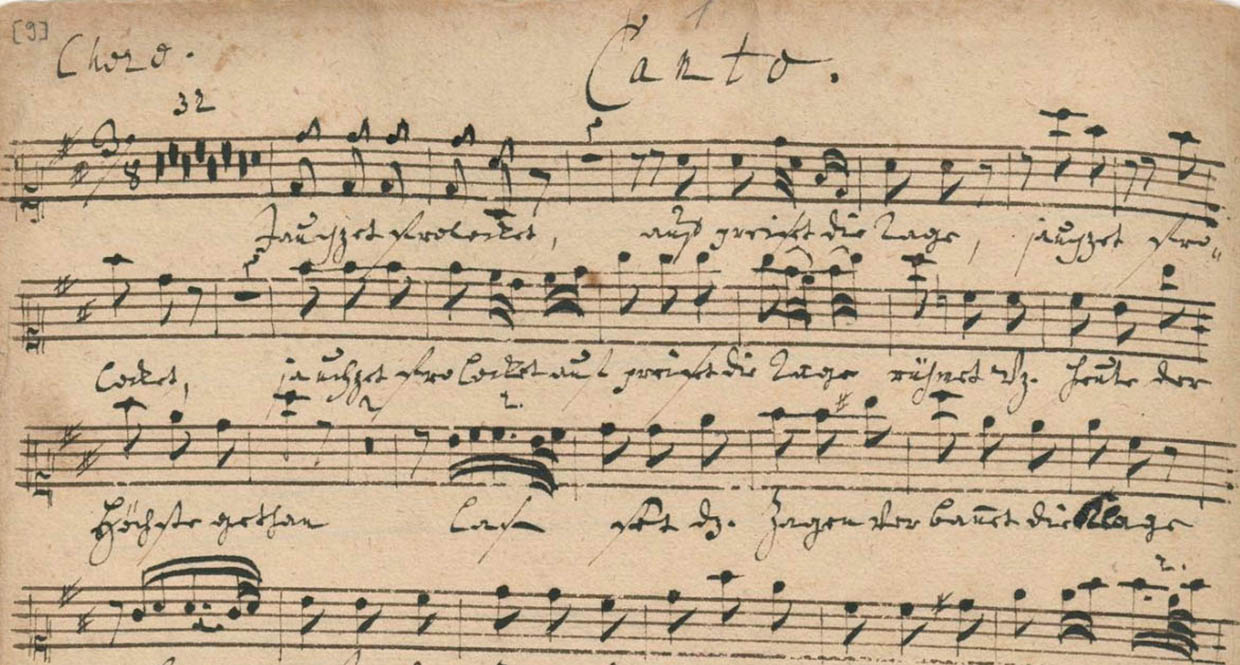 [9]
Choro. Canto.
32
Jauchzet frolocket, auf preiset die Tage, jauchzet fro-
locket, jauchzet frolocket auf preiset die Tage rühmet dz. heute der
2 2.
Höchste gethan Laß set dz. Zagen verbannet die Klage
2.